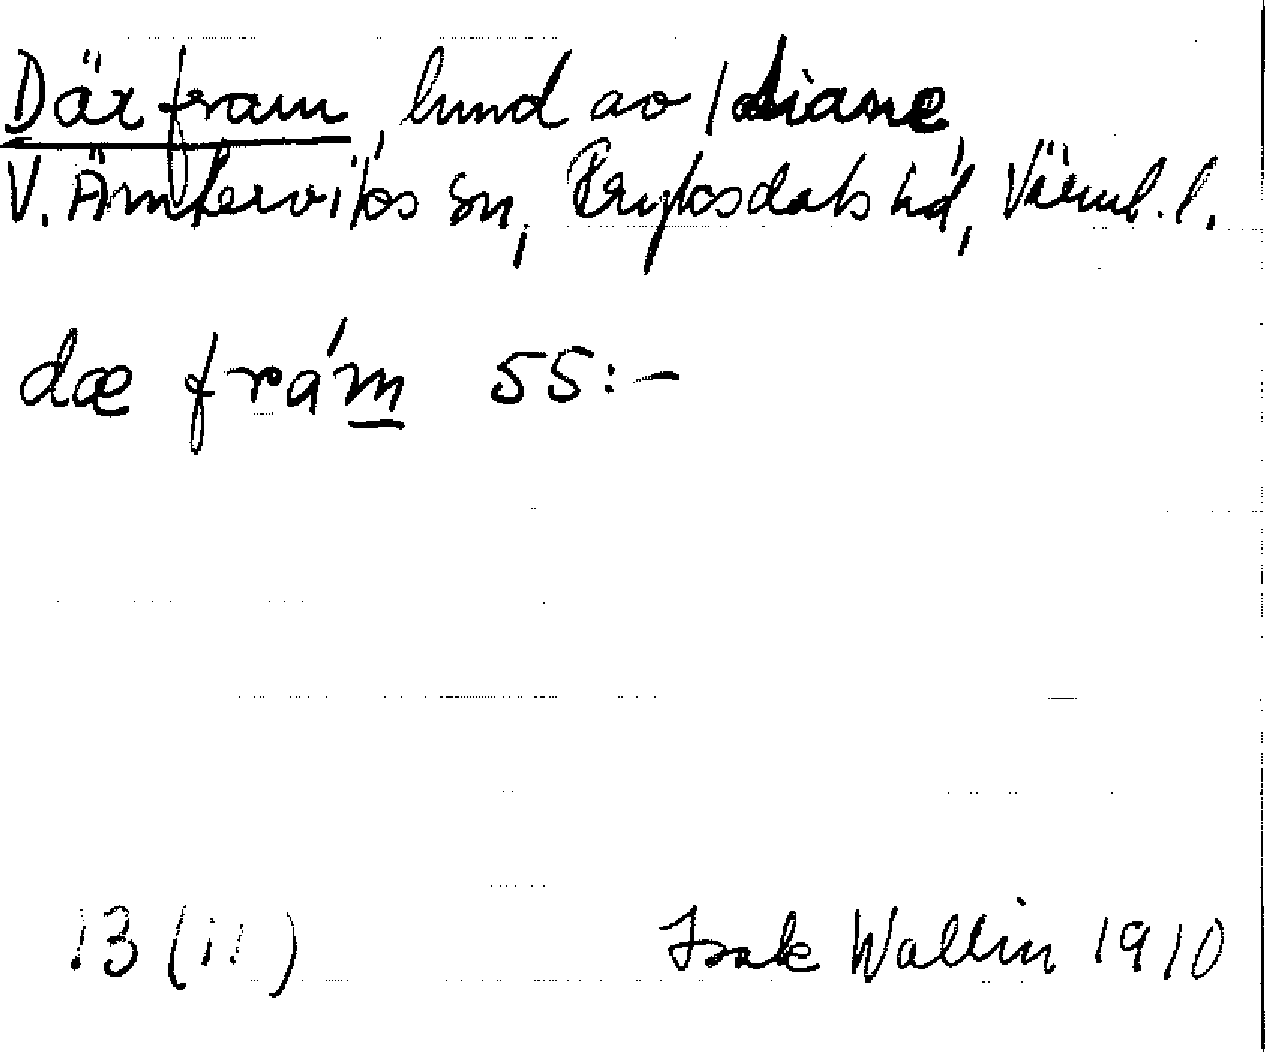 Där fram, lund av
V. Ämterviks sn, Fryksdals hd, Värml. l.
dæ frám 55:-
13 (11)
Isak Wallin 1910